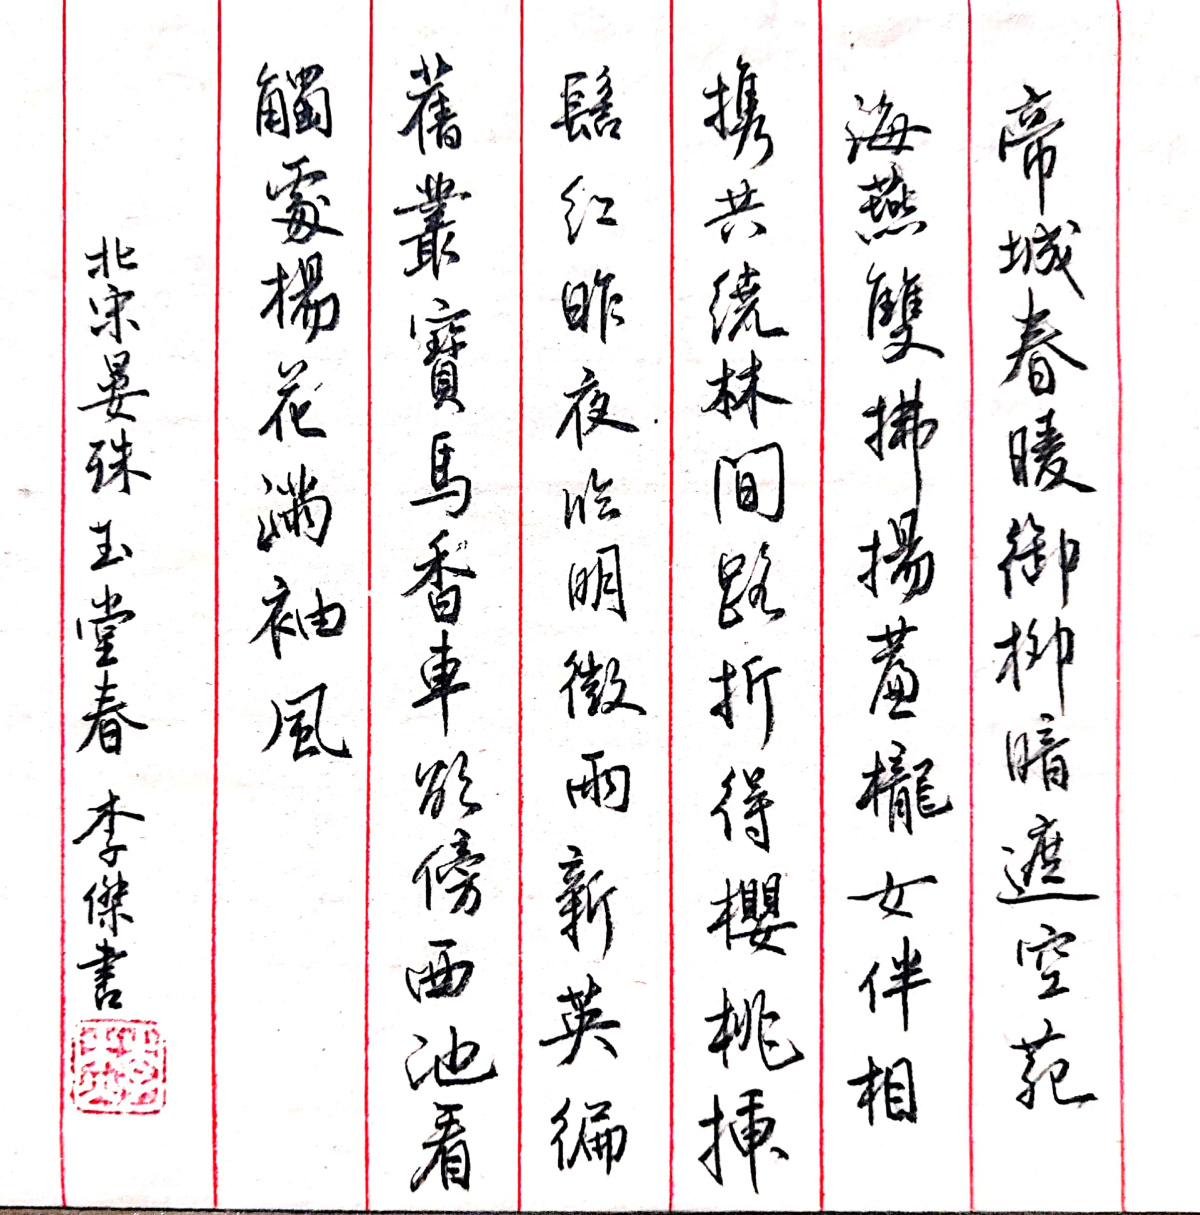 帝城春暖御柳暗遮空苑
海燕雙拂揚蓋櫳女伴相
攜共繞林間路折得櫻桃插
髻紅昨夜臨明微雨新英徧
舊叢寶馬香車欲傍西池看
觸處楊花滿袖風
北宋晏殊玉堂春 李傑書